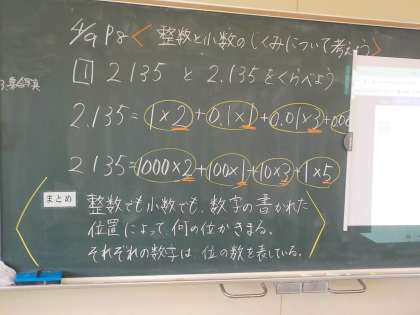 4/9 P8 <整数と小数のしくみについて考えよう>
1 2135 と 2.135をくらべよう
2.135=1×2+0.1×1+0.01×3+0.00
2135=1000×2+100×1+10×3+1×5
まとめ
整数でも小数でも、数字の書かれた
位置によって、何の位かきまる。
それぞれの数字は、位の数を表している。